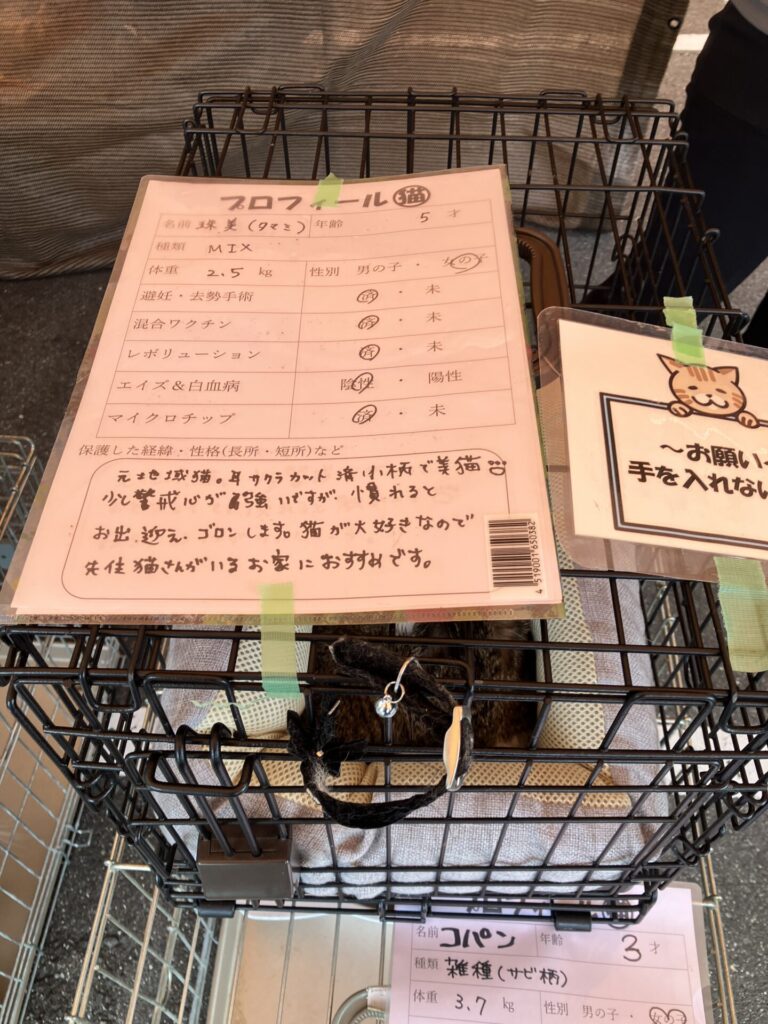 プロフィール 猫
名前 珠美(タマミ) 年齢 5 才
種類 MIX
体重 2.5 kg 性別 男の子 ・ 女の子
避妊・去勢手術 済 ・ 未
混合ワクチン 済 ・ 未
レボリューション 済 ・ 未
エイズ&白血病 陰性 ・ 陽性
マイクロチップ 済 ・ 未
保護した経緯・性格(長所・短所)など
元地域猫。耳サクラカット済 小柄で美猫
少し警戒心が強いですが、慣れると
お出迎え、ゴロンします。猫が大好きなので
先住猫さんがいるお家におすすめです。
4519001650382
～お願い
手を入れない
名前 コパン 年齢 3 才
種類 雑種(サビ柄)
体重 3.7 kg 性別 男の子 ・ 女の子